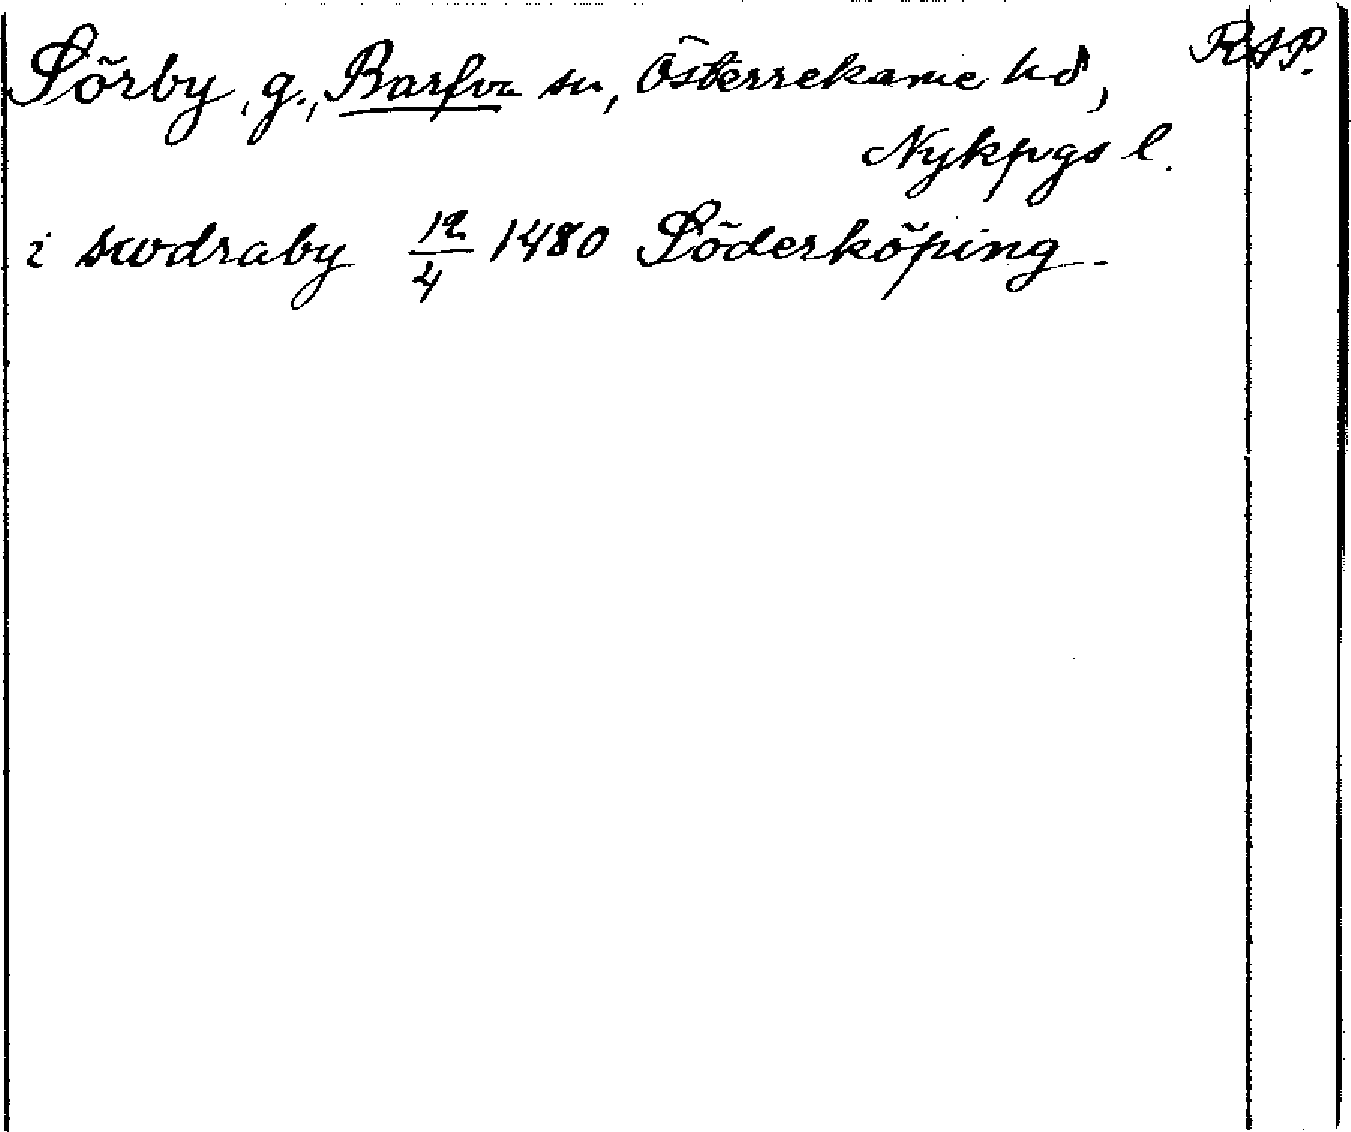 Sörby, g., Barfva sn, Österrekarne hd, RAP.
Nykpgs l.
i swdraby 12/4 1480 Söderköping.